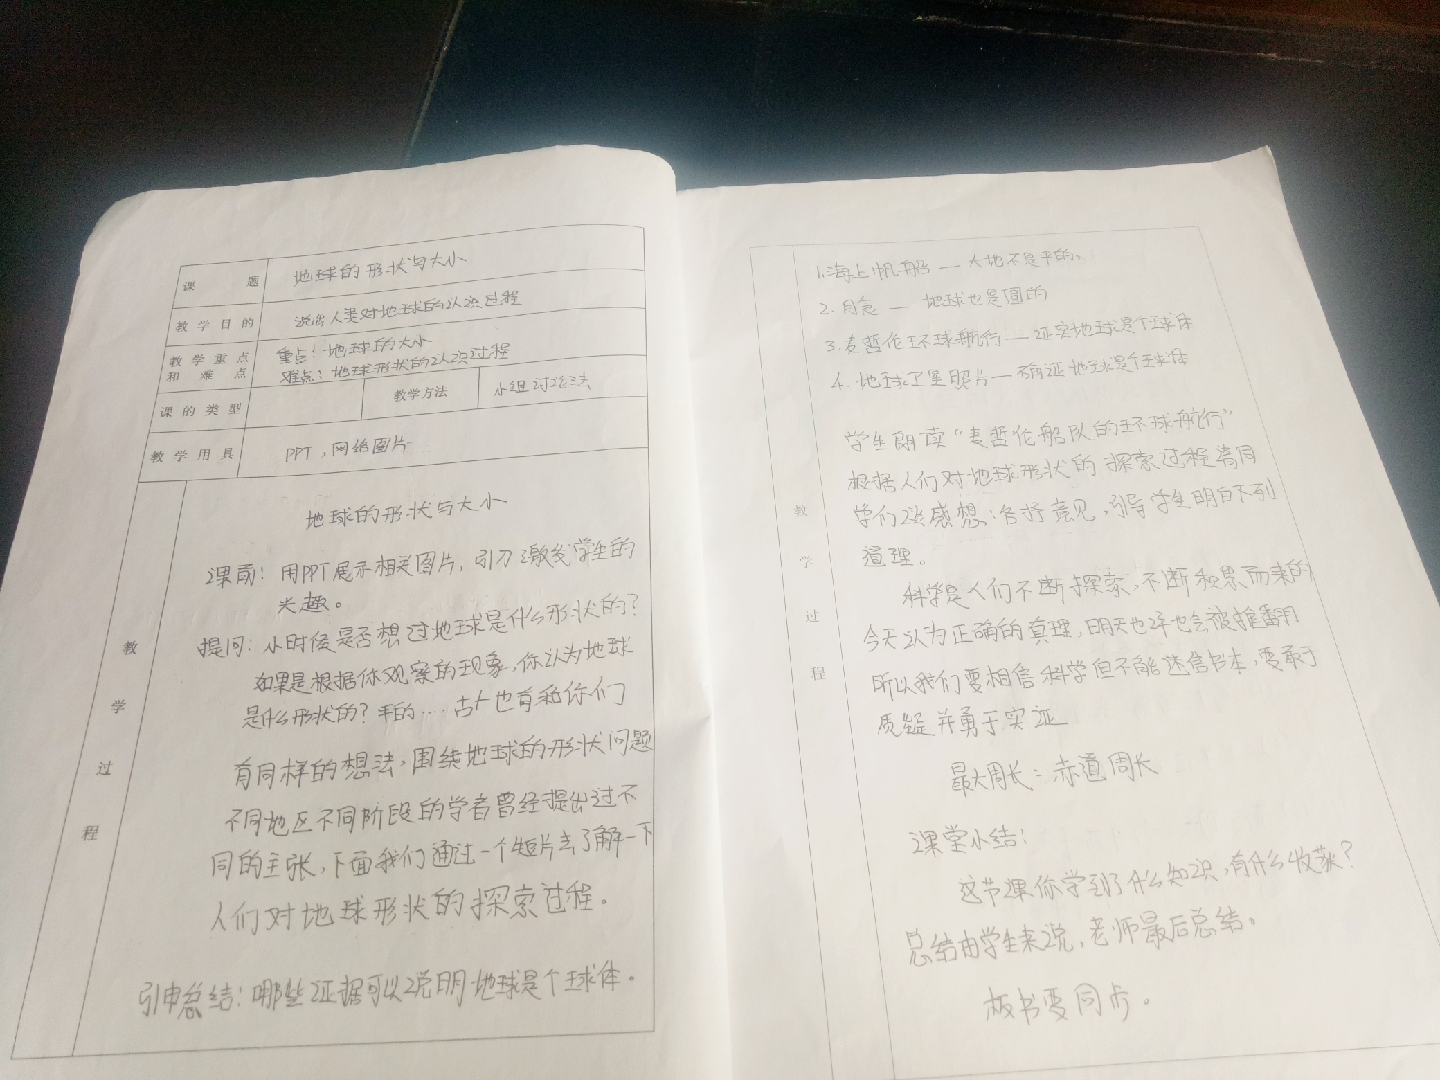 课 题 地球的形状与大小
教学目的 说出人类对地球的认识过程
教学重点和难点 重点:地球的大小
难点:地球形状的认识过程
课的类型 教学方法 小组讨论法
教学用具 PPT,网络图片
教学过程
地球的形状与大小
课前:用PPT展示相关图片,引刀激发学生的
兴趣。
提问:小时候是否想过地球是什么形状的?
如果是根据你观察的现象,你认为地球
是什么形状的?平的...古人也有和你们
有同样的想法,围绕地球的形状问题
不同地区不同阶段的学者曾经提出过不
同的主张,下面我们通过一个短片去了解一下
人们对地球形状的探索过程。
引申总结:哪些证据可以说明地球是个球体。
教学过程
1.海上帆船——大地不是平的。
2.月食——地球也是圆的
3.麦哲伦环球航行——证实地球是个球体
4.地球卫星照片——确证地球是个球体
学生朗读“麦哲伦船队的环球航行”
根据人们对地球形状的探索过程请同
学们谈感想:各抒意见,引导学生明白下列
道理。
科学是人们不断探索,不断积累而来的
今天认为正确的真理,明天也许也会被推翻
所以我们要相信科学但不能迷信书本,要敢于
质疑并勇于实证
最大周长:赤道周长
课堂小结:
这节课你学到了什么知识,有什么收获?
总结由学生来说,老师最后总结。
板书要同步。